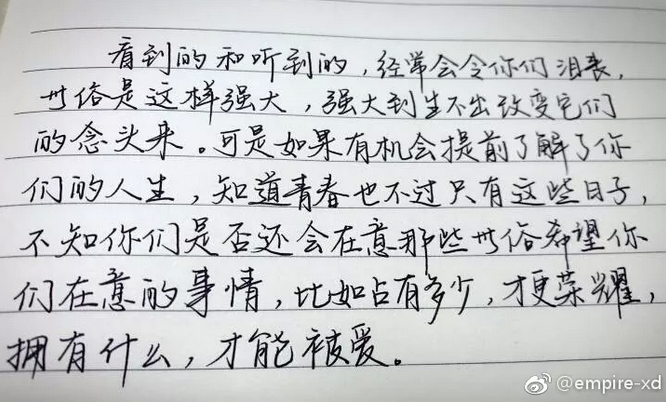 看到的和听到的，经常会令你们沮丧，
世俗是这样强大，强大到生不出改变它们
的念头来。可是如果有机会提前了解了你
们的人生，知道青春也不过只有这些日子，
不知你们是否还会在意那些世俗希望你
们在意的事情，比如占有多少，才更荣耀，
拥有什么，才能被爱。
@empire-xd